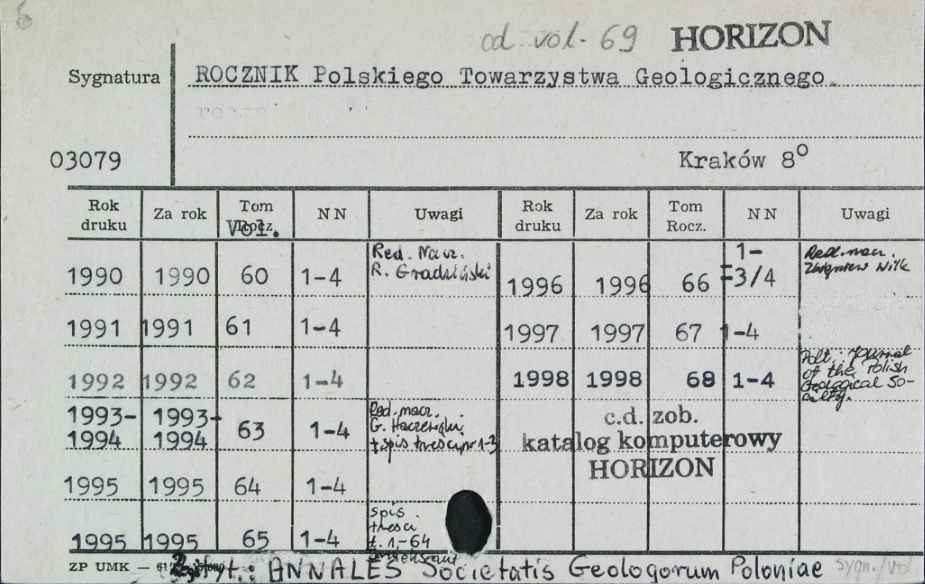 od vol. 69 HORIZON
Sygnatura ROCZNIK Polskiego Towarzystwa Geologicznego
03079 Kraków 8°
Rok druku Za rok Tom Rocz. Vol. NN Uwagi Rok druku Za rok Tom Rocz. NN Uwagi
1990 1990 60 1-4 Red. Nacz. R. Gradziński 1996 1996 66 1-3/4 Red. nacz. Zbigniew Wilk
1991 1991 61 1-4 1997 1997 67 1-4
1992 1992 62 1-4 1998 1998 68 1-4 Podt.: Journal of the Polish Geological So-ciety.
1993-1994 1993-1994 63 1-4 Red. nacz. G. + spis treści nr 1-3 c.d. zob. katalog komputerowy HORIZON
1995 1995 64 1-4
1995 1995 65 1-4 spis treści t. 1-64
ZP UMK — ANNALES Societatis Geologorum Poloniae Sygn./Vol